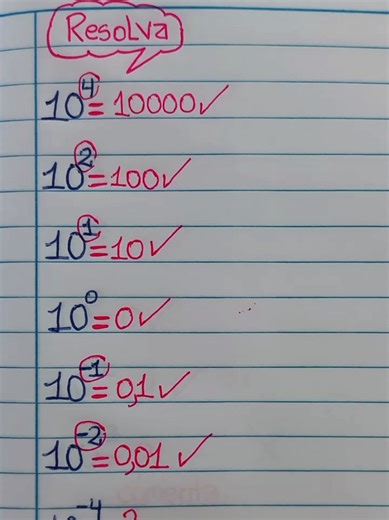 Resolva
10⁴ = 10000 ✓
10² = 100 ✓
10¹ = 10 ✓
10⁰ = 0 ✓
10⁻¹ = 0,1 ✓
10⁻² = 0,01 ✓
10⁻⁴ ?